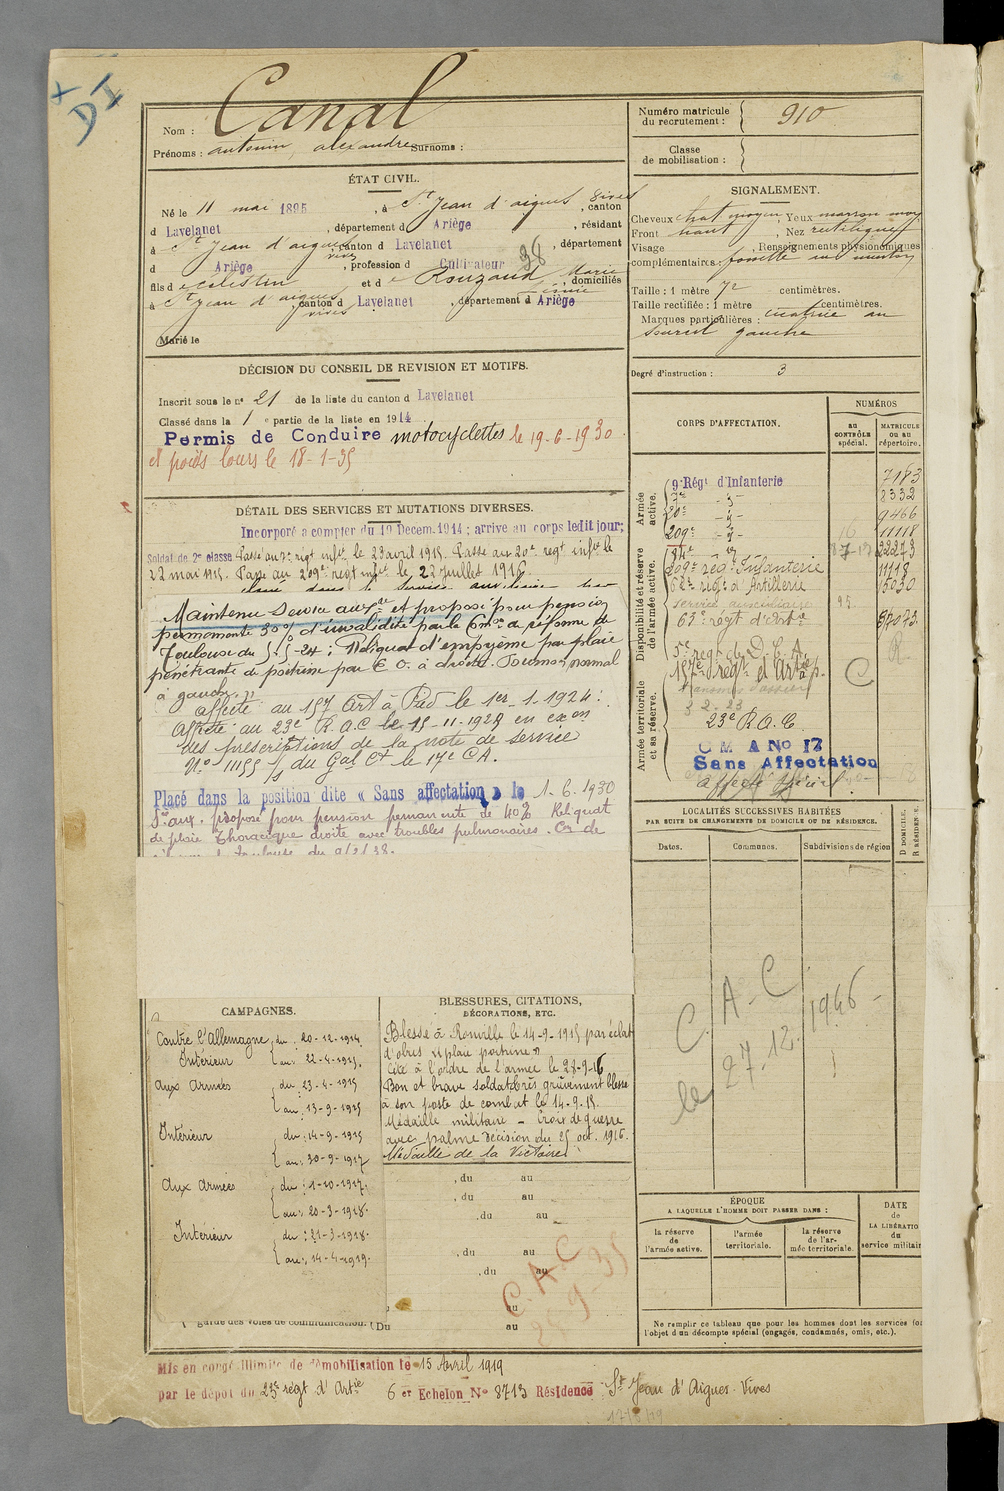 +
DI
Nom : Canal
Prénoms : antonin, alexandre Surnoms :
ÉTAT CIVIL.
Né le 11 mai 1895, à St Jean d'aigues vives, canton
d Lavelanet, département d Ariège, résidant
à St Jean d'aigues vives canton d Lavelanet, département
d Ariège, profession d Cultivateur 38
fils d e celestin et d e Rouzaud Marie, domiciliés
à St Jean d'aigues vives, canton d Lavelanet, département d Ariège
Marié le
DÉCISION DU CONSEIL DE REVISION ET MOTIFS.
Inscrit sous le n° 21 de la liste du canton d Lavelanet
Classé dans la 1 e partie de la liste en 1914
Permis de Conduire motocyclettes le 19-6-1930
et poids lours le 18-1-35
DÉTAIL DES SERVICES ET MUTATIONS DIVERSES.
Incorporé a compter du 19 Décem. 1914 ; arrive au corps ledit jour;
Soldat de 2e classe Passé au 7e régt infie le 23 avril 1915. Passé au 20e regt infie le
22 mai 1915. Passé au 209e regt infie le 22 Juillet 1915
dans le service auxiliaire
Maintenu Service auxre et proposé pour pension
permanente 30% d'invalidité par la Comon de réforme de
Toulouse du 5-5-24 ; Reliquat d'empyème par plaie
pénétrante de poitrine par E. O. à droite. Poumon normal
à gauche."
affecté au 157 Art à Pied le 1er-1-1924 :
Affecté au 23e R.A.C le 15-11-1928 en exon
des prescriptions de la note de service
No 11155 1/S du Gal Ct le 17e C.A.
Placé dans la position dite « Sans affectation » le 1-6-1930
Sce aux. proposé pour pension permanente de 40% Reliquat
de plaie thoracique droite avec troubles pulmonaires. Con de
Toulouse du 9/2/38.
CAMPAGNES.
Contre l'Allemagne du : 20-12-1914
Intérieur au : 22-4-1915.
Aux Armées du : 23-4-1915
au : 13-9-1915
Intérieur du : 14-9-1915
au : 30-9-1917
Aux Armées du : 1-10-1917.
au : 20-3-1918.
Intérieur du : 21-3-1918.
au : 14-4-1919.
garde des voies de communication. (Du au
BLESSURES, CITATIONS,
DÉCORATIONS, ETC.
Blessé à Ronville le 14-9-1915 par éclat
d'obus "plaie poitrine"
Cité à l'ordre de l'armée le 28-9-16
Bon et brave soldat très grièvement blessé
à son poste de combat le 14-9-15.
Médaille militaire - Croix de guerre
avec palme décision du 25 oct. 1916.
Médaille de la Victoire
, du au
, du au
, du au
, du au
, du au
au
au
C.A.C
28-9-35
Mis en congé illimité de démobilisation le 15 Avril 1919
par le dépôt du 23e régt d'Artie 6 er Echelon No 8713 Résidence St Jean d'Aigues-Vives
Numéro matricule
du recrutement : 910
Classe
de mobilisation :
SIGNALEMENT.
Cheveux chat moyen, Yeux marron moy
Front haut, Nez rectiligne
Visage , Renseignements physionomiques
complémentaires : fossette au menton
Taille : 1 mètre 72 centimètres.
Taille rectifiée : 1 mètre centimètres.
Marques particulières : cicatrice au
sourcil gauche
Degré d'instruction : 3
CORPS D'AFFECTATION.
NUMÉROS
AU
CONTRÔLE
spécial.
MATRICULE
OU AU
répertoire.
Armée
active.
9e Régt d'Infanterie 7183
7e -"- 8332
20e -"- 9466
209e -"- 11118
-"- 22273
Disponibilité et réserve
de l'armée active.
209e rég. Infanterie 11118
régt d'Artillerie 15030
Service auxiliaire 95
63e régt d'Artie
5e regt de D.C.A. R
157e régt et Artie à p. C
Armée territoriale
et sa réserve.
2. 23
23e R.A.C.
C M A No 17
Sans Affectation
Affecté spécial
LOCALITÉS SUCCESSIVES HABITÉES
PAR SUITE DE CHANGEMENTS DE DOMICILE OU DE RÉSIDENCE.
Dates.
Communes.
Subdivisions de région
D DOMICILE.
C. A-C
le 27-12. 1946-
ÉPOQUE
A LAQUELLE L'HOMME DOIT PASSER DANS :
la réserve
de
l'armée active.
l'armée
territoriale.
la réserve
de l'ar-
mée territoriale.
DATE
de
LA LIBÉRATIO
du
service militair
Ne remplir ce tableau que pour les hommes dont les services
l'objet d'un décompte spécial (engagés, condamnés, omis, etc.).